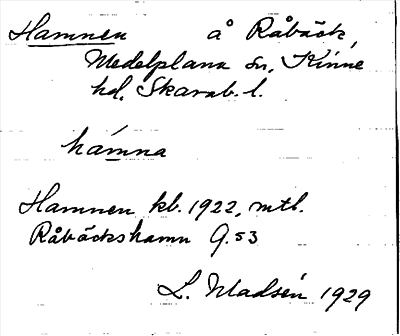 Hamnen å Råbäck,
Medelplana sn, Kinne
hd, Skarab. l.
hámna
Hamnen kb. 1922, mtl.
Råbäckshamn G. 53
L. Madsén 1929